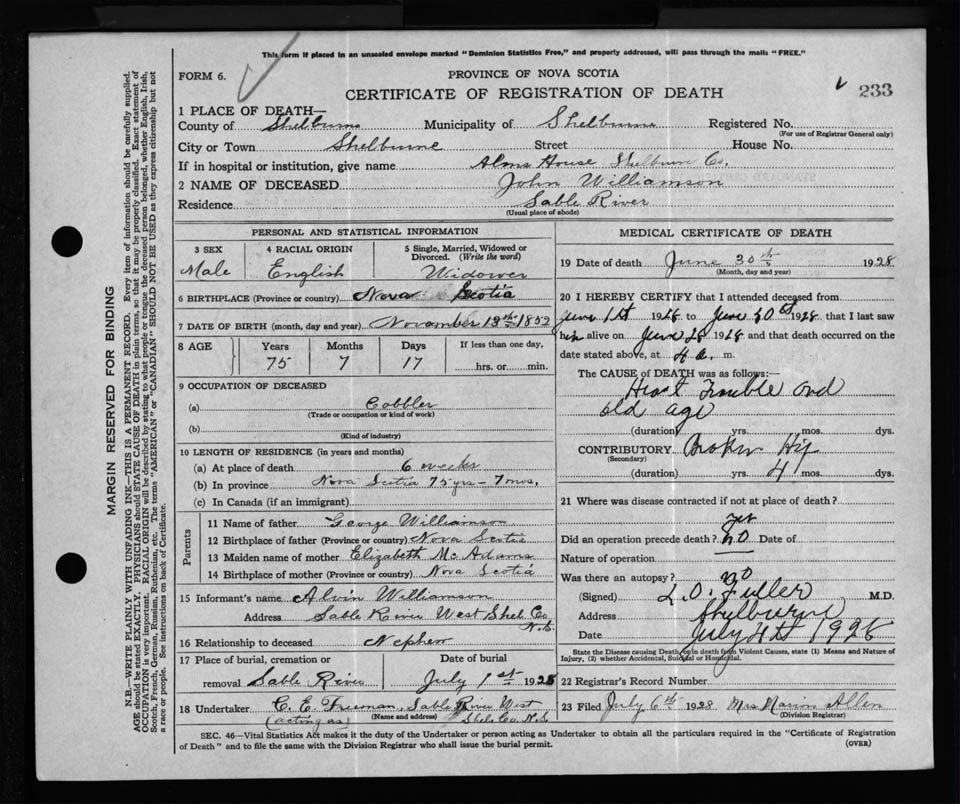 This form if placed in an unsealed envelope marked "Dominion Statistics Free," and properly addressed, will pass through the mails "FREE."
FORM 6.
PROVINCE OF NOVA SCOTIA
CERTIFICATE OF REGISTRATION OF DEATH
233
1 PLACE OF DEATH—
County of Shelburne Municipality of Shelburne Registered No.
(For use of Registrar General only)
City or Town Shelburne Street House No.
If in hospital or institution, give name Alms House Shelburn Co.
2 NAME OF DECEASED John Williamson
Residence Sable River
(Usual place of abode)
PERSONAL AND STATISTICAL INFORMATION
3 SEX 4 RACIAL ORIGIN 5 Single, Married, Widowed or Divorced. (Write the word)
Male English Widower
6 BIRTHPLACE (Province or country) Nova Scotia
7 DATE OF BIRTH (month, day and year) November 13th 1852
8 AGE Years Months Days If less than one day,
75 7 17 hrs. or min.
9 OCCUPATION OF DECEASED
(a) Cobbler
(Trade or occupation or kind of work)
(b)
(Kind of industry)
10 LENGTH OF RESIDENCE (in years and months)
(a) At place of death 6 weeks
(b) In province Nova Scotia 75 yrs - 7 mos.
(c) In Canada (if an immigrant)
Parents
11 Name of father George Williamson
12 Birthplace of father (Province or country) Nova Scotia
13 Maiden name of mother Elizabeth Mc Adams
14 Birthplace of mother (Province or country) Nova Scotia
15 Informant's name Alvin Williamson
Address Sable River West Shel. Co.
N.S.
16 Relationship to deceased Nephew
17 Place of burial, cremation or Date of burial
removal Sable River July 1st 1928
18 Undertaker C. E. Freeman, Sable River West
(acting as) (Name and address) Shel. Co. N.S.
MEDICAL CERTIFICATE OF DEATH
19 Date of death June 30th 1928
(Month, day and year)
20 I HEREBY CERTIFY that I attended deceased from
June 1st 1928 to June 30th 1928 that I last saw
him alive on June 28 1928 and that death occurred on the
date stated above, at 4 a. m.
The CAUSE of DEATH was as follows:—
Heart Trouble and
old age
(duration) yrs. mos. dys.
CONTRIBUTORY Broken Hip
(Secondary)
(duration) yrs. 4 mos. dys.
21 Where was disease contracted if not at place of death?
Did an operation precede death? no Date of
Nature of operation
Was there an autopsy? no
(Signed) L. O. Fuller M.D.
Address Shelburne
Date July 4th 1928
State the Disease causing Death, or in death from Violent Causes, state (1) Means and Nature of
Injury, (2) whether Accidental, Suicidal or Homicidal.
22 Registrar's Record Number
23 Filed July 6th 1928 Mrs. Marion Allen
(Division Registrar)
SEC. 46—Vital Statistics Act makes it the duty of the Undertaker or person acting as Undertaker to obtain all the particulars required in the "Certificate of Registration
of Death" and to file the same with the Division Registrar who shall issue the burial permit. (OVER)
MARGIN RESERVED FOR BINDING
N.B.—WRITE PLAINLY WITH UNFADING INK—THIS IS A PERMANENT RECORD. Every item of information should be carefully supplied.
AGE should be stated EXACTLY. PHYSICIANS should STATE CAUSE OF DEATH in plain terms, so that it may be properly classified. Exact statement of
OCCUPATION is very important. RACIAL ORIGIN will be described by stating to what people or tongue the deceased person belonged, whether English, Irish,
Scotch, French, German, Russian, Ruthenian, etc. The terms "AMERICAN" or "CANADIAN" SHOULD NOT BE USED as they express citizenship but not
a race or people. See instructions on back of Certificate.